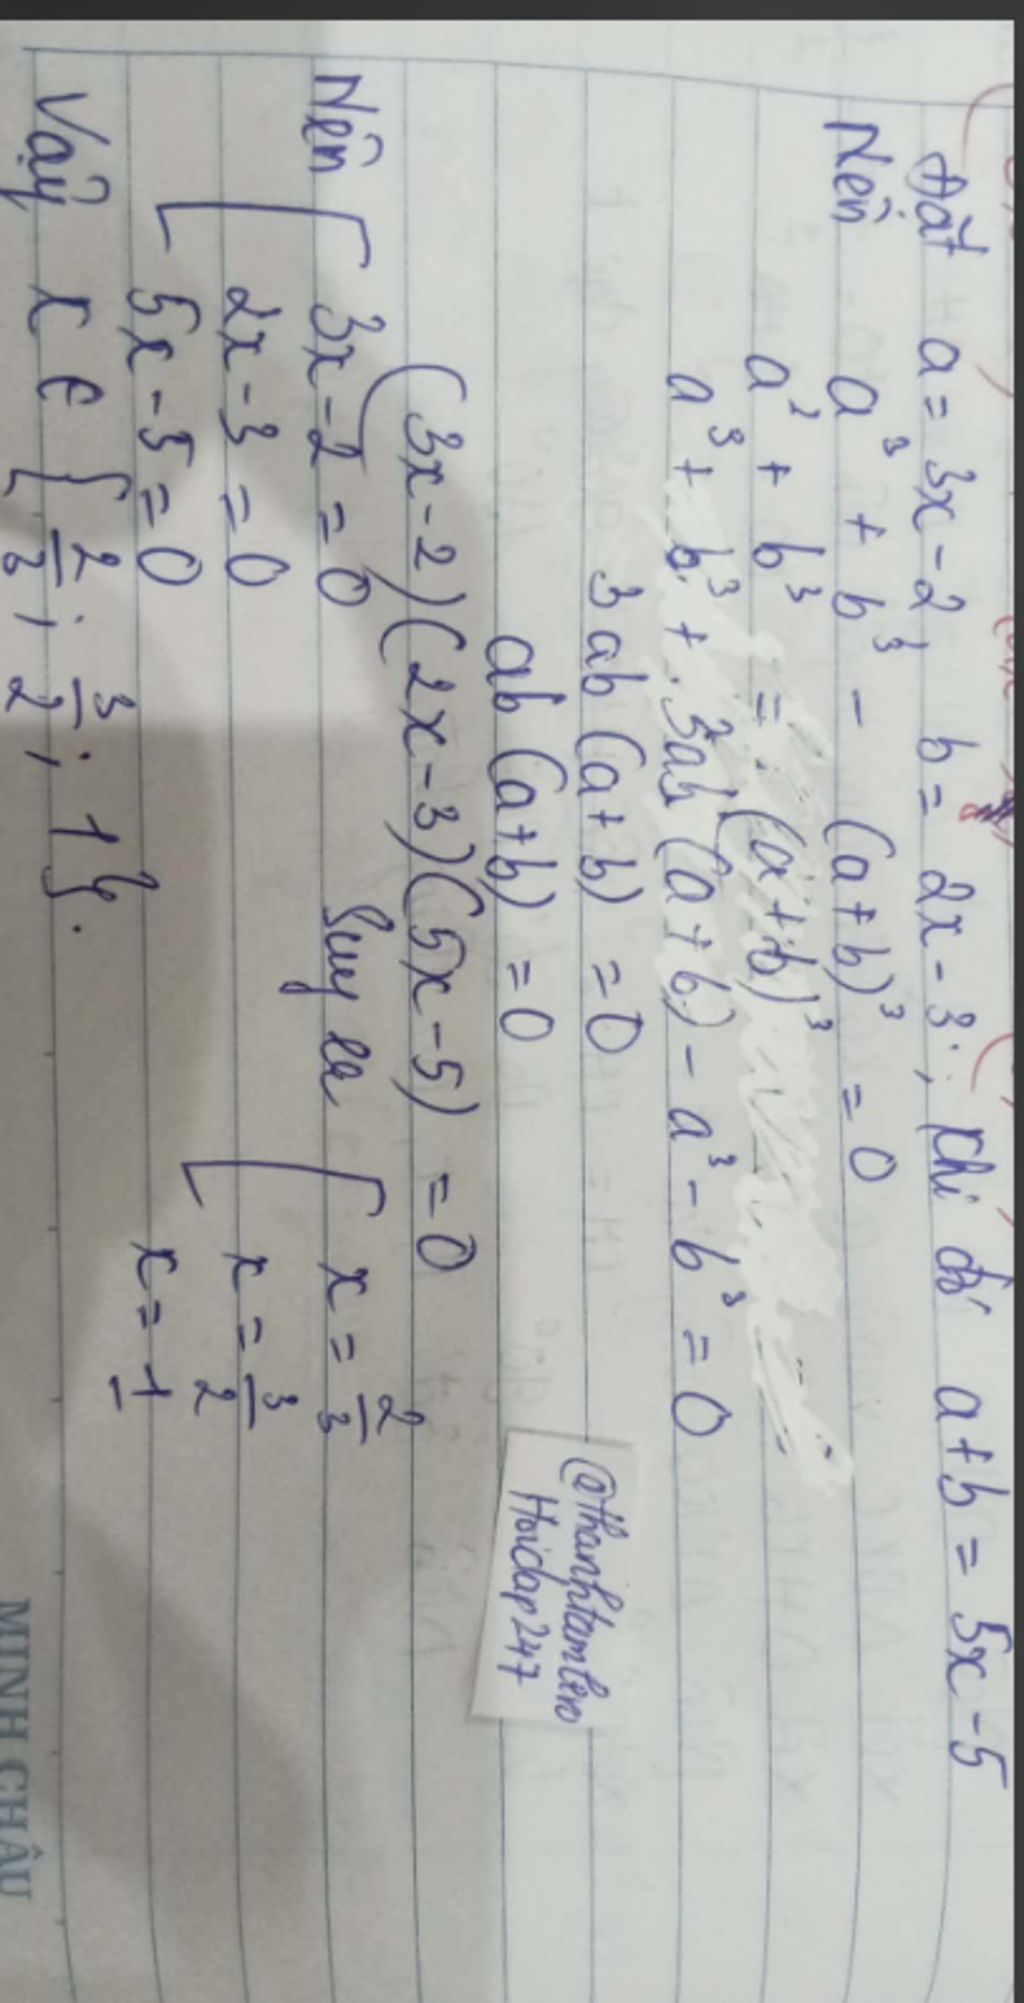 Đặt a = 3x - 2; b = 2x - 3; khi đó a + b = 5x - 5
Nên a³ + b³ - (a+b)³ = 0
a³ + b³ = (a+b)³
a³ + b³ + 3ab (a+b) - a³ - b³ = 0
3ab (a+b) = 0
ab (a+b) = 0
(3x-2)(2x-3)(5x-5) = 0
Nên [ 3x-2 = 0 Suy ra [ x = 2/3
2x-3 = 0 x = 3/2
5x-5 = 0 x = 1
Vậy x ∈ { 2/3; 3/2; 1}.
@thanhtamlen
Hoidap247
MINH CHÂU